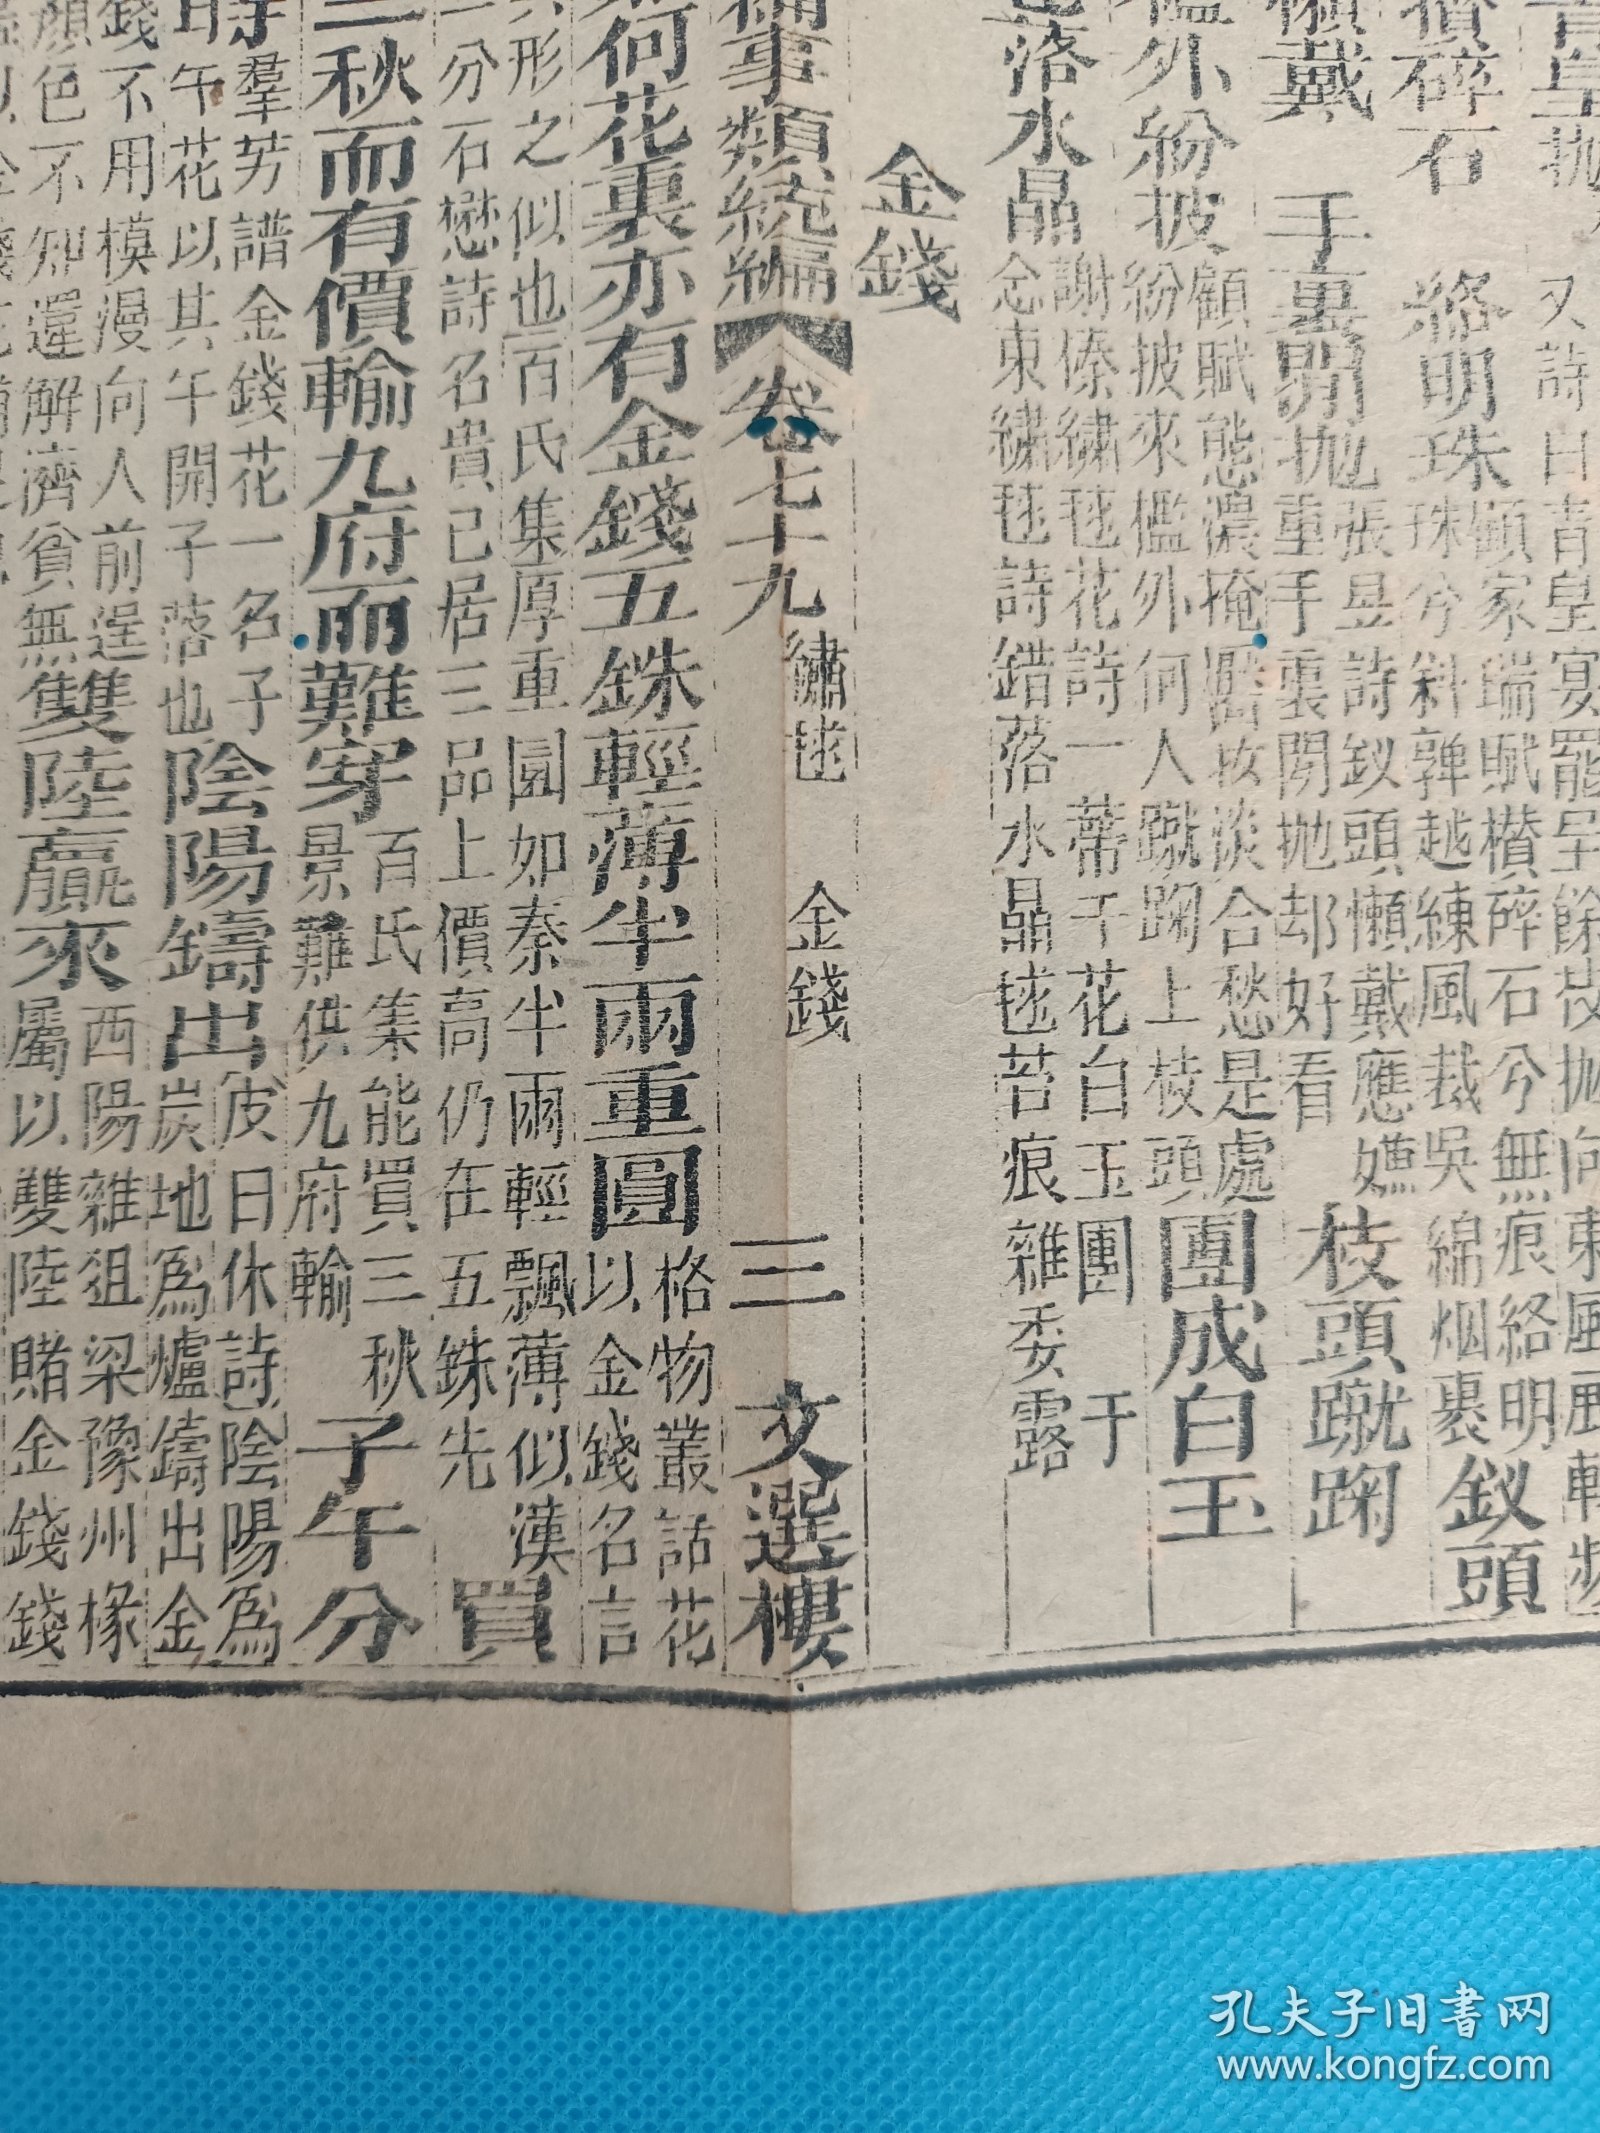 又詩曰青皇宴罷呈餘枝拋向東風
碎石
絡明珠
顧家瑞賦攢碎石兮無痕絡明
珠兮斜亸越練風裁吳綿烟裹
釵頭
懶戴
手裏閒拋
張昱詩釵頭懶戴應嫌
重手裏閒拋却好看
枝頭蹴踘
檻外紛披
顧賦態濃掩麗妝淡合愁是處
紛披來檻外何人蹴踘上枝頭
團成白玉
謝傣繡毬花詩一蒂千花白玉團 于
念東繡毬詩錯落水晶毬苔痕雜委露
落水晶
金錢
事類統編 卷七十九 繡毬 金錢 三 文選樓
荷花裏亦有金錢五銖輕薄半兩重圓
格物叢話花
以金錢名言
形之似也百氏集厚重圓如秦半兩輕飄薄似漢
一分石懋詩名貴已居三品上價高仍在五銖先
買
三秋而有價輸九府而難穿
百氏集能買三秋
景難供九府輸
子午分
羣芳譜金錢花一名子
午花以其午開子落也
陰陽鑄出
皮日休詩陰陽爲
炭地爲爐鑄出金
錢不用模漫向人前逞
顏色不知還解濟貧無
雙陸贏來
西陽雜俎梁豫州椽
屬以雙陸賭金錢錢